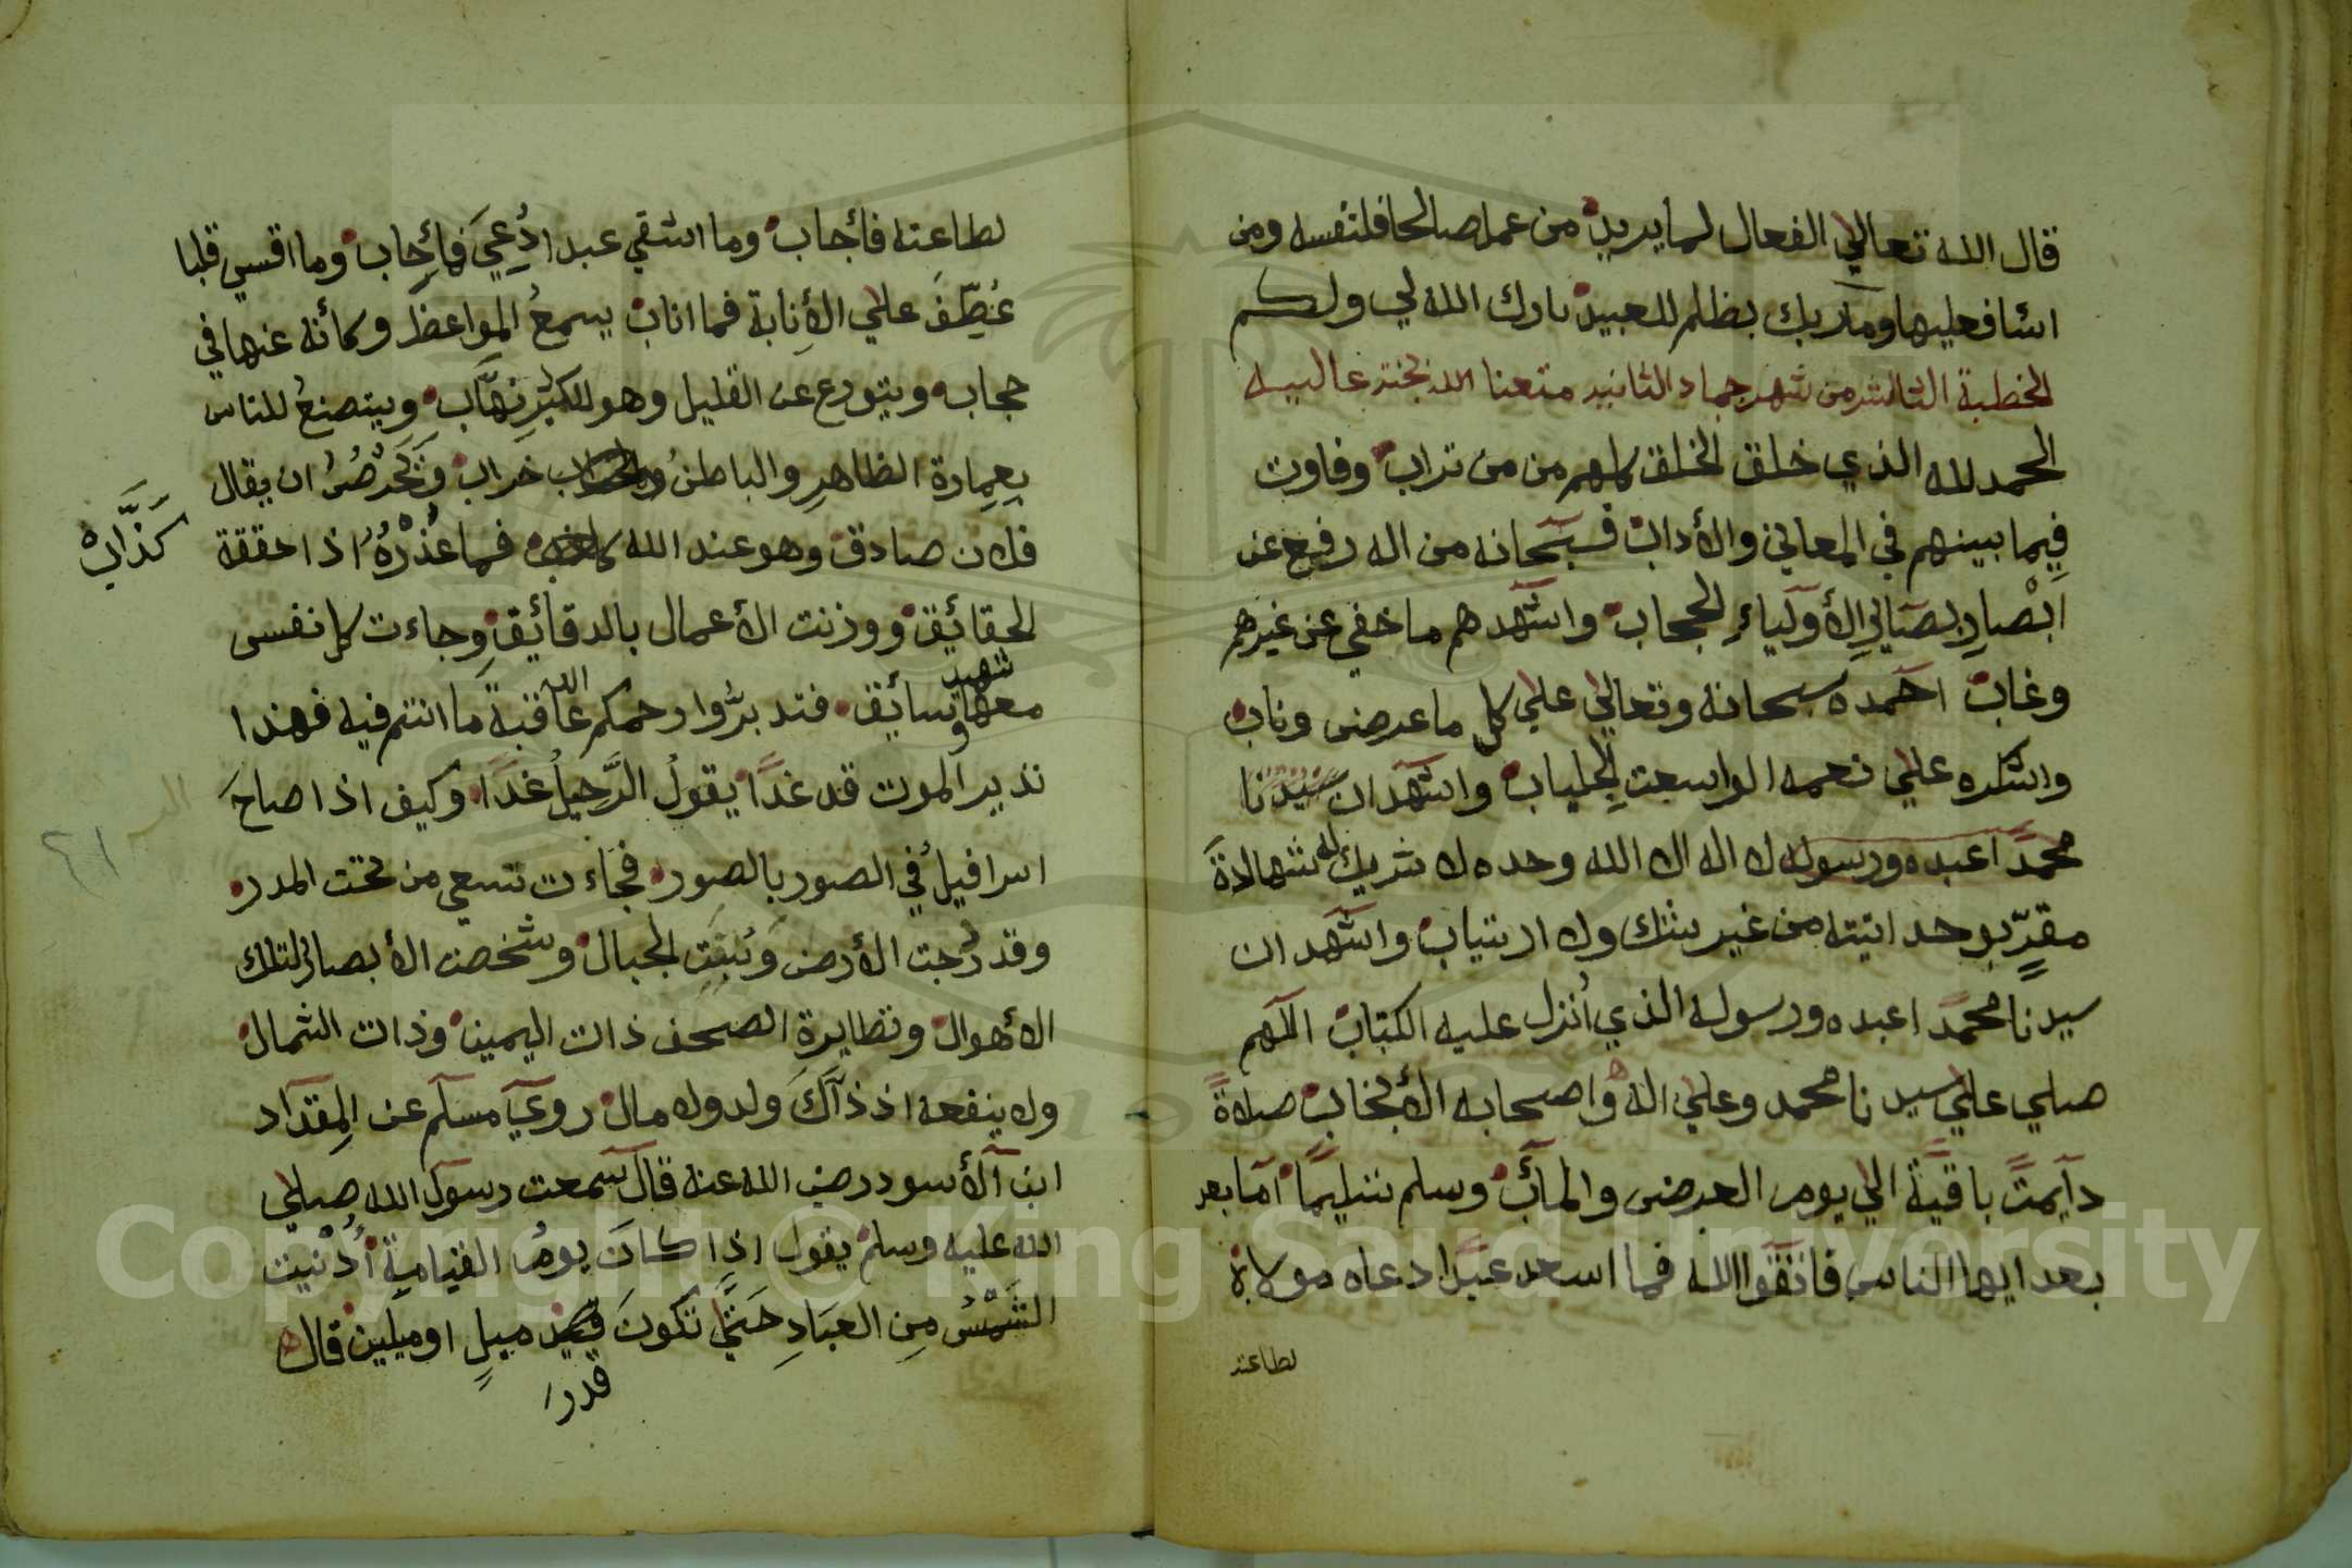 قال الله تعالي الفعال لما يريد من عمل صالحا فلنفسه ومن
اسا فعليها وما ربك بظلم للعبيد بارك الله لي ولكم
الخطبة الثالثة من شهر جماد الثانيه متعنا الله بجنته عاليه
الحمد لله الذي خلق الخلق كلهم من من تراب وفاوت
فيما بينهم في المعاني والأداب فسبحانه من اله رفع عن
ابصار بصائر الأولياء الحجاب واشهدهم ما خفي عن غيرهم
وغاب احمده سبحانه وتعالي علي كل ما عرض وناب
واشكره علي نعمه الواسعت الجلباب واشهد ان سيدنا
محمدا عبده ورسوله لا اله الا الله وحده لا شريك له شهادة
مقر بوحدانيته من غير شك ولا ارتياب واشهد ان
سيدنا محمدا عبده ورسوله الذي أنزل عليه الكتاب اللهم
صلي علي سيدنا محمد وعلي اله واصحابه الأنجاب صلاة
دآيمت باقية الي يوم العرض والمأب وسلم تسليما اما بعد
بعد ايها الناس فاتقوا الله فما اسعد عبدا دعاه مولاه
لطاعته
لطاعته فأجاب وما اشقي عبدا دُعِيَ فما أجاب وما اقسي قلبا
عُطِّفَ علي الأنابة فما اناب يسمعُ المواعظ وكأنه عنها في
حجاب ويتورع عن القليل وهو للكثير نهّاب ويتصنعُ للناس
بعمارة الظاهر والباطنُ خراب ويحرصُ ان يقال
فلان صادق وهو عند الله فما عُذْرُهُ اذا حققة
كَذَّابْ
الحقائق ووزنت الأعمال بالدقائق وجاءت كل نفس
معها سائق وشهيد فتدبروا رحمكم الله عاقبة ما انتم فيه فهذا
نذير الموت قد غدًا يقولُ الرَّحيلُ غدًا وكيف اذا صاحَ
اسرافيلُ في الصور بالصور فجاءت تسعي من تحت المدر
وقد رجت الأرض وبُسَّتِ الجبال وشخصت الأبصار لتلك
الأهوال وتطايرة الصحف ذات اليمين وذات الشمال
ولا ينفعه اذ ذاك ولد ولا مال روي مسلم عن المقداد
ابن الأسود رضي الله عنه قال سمعت رسول الله صلي
الله عليه وسلم يقول اذا كان يومُ القيامةِ أُدْنيت
الشَمْسُ مِن العبَادِ حَتَّي تكونَ قدر ميلٍ او ميلين قال
قدرَ
٤١